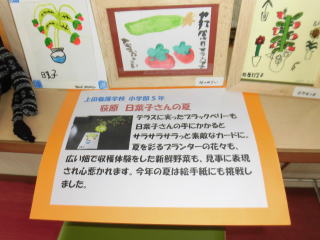 上田養護学校 小学部5年
荻原 日葉子さんの夏
テラスに実ったブラックベリーも
日葉子さんの手にかかると
サラサラサラっと素敵なカードに。
夏を彩るプランターの花々も、
広い畑で収穫体験をした新鮮野菜も、見事に表現
され心惹かれます。今年の夏は絵手紙にも挑戦し
ました。